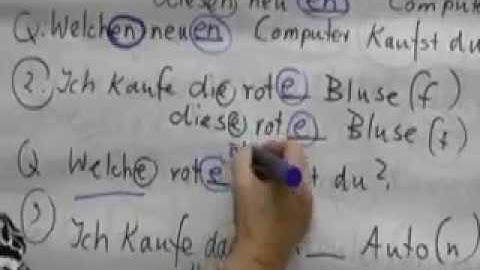 diesen neuen Computer
Q. Welchen neuen Computer kaufst du
2. Ich kaufe die rote Bluse (f)
diese rote Bluse (f)
Q Welche rote t du?
3 Ich kaufe da __ Auto (n)